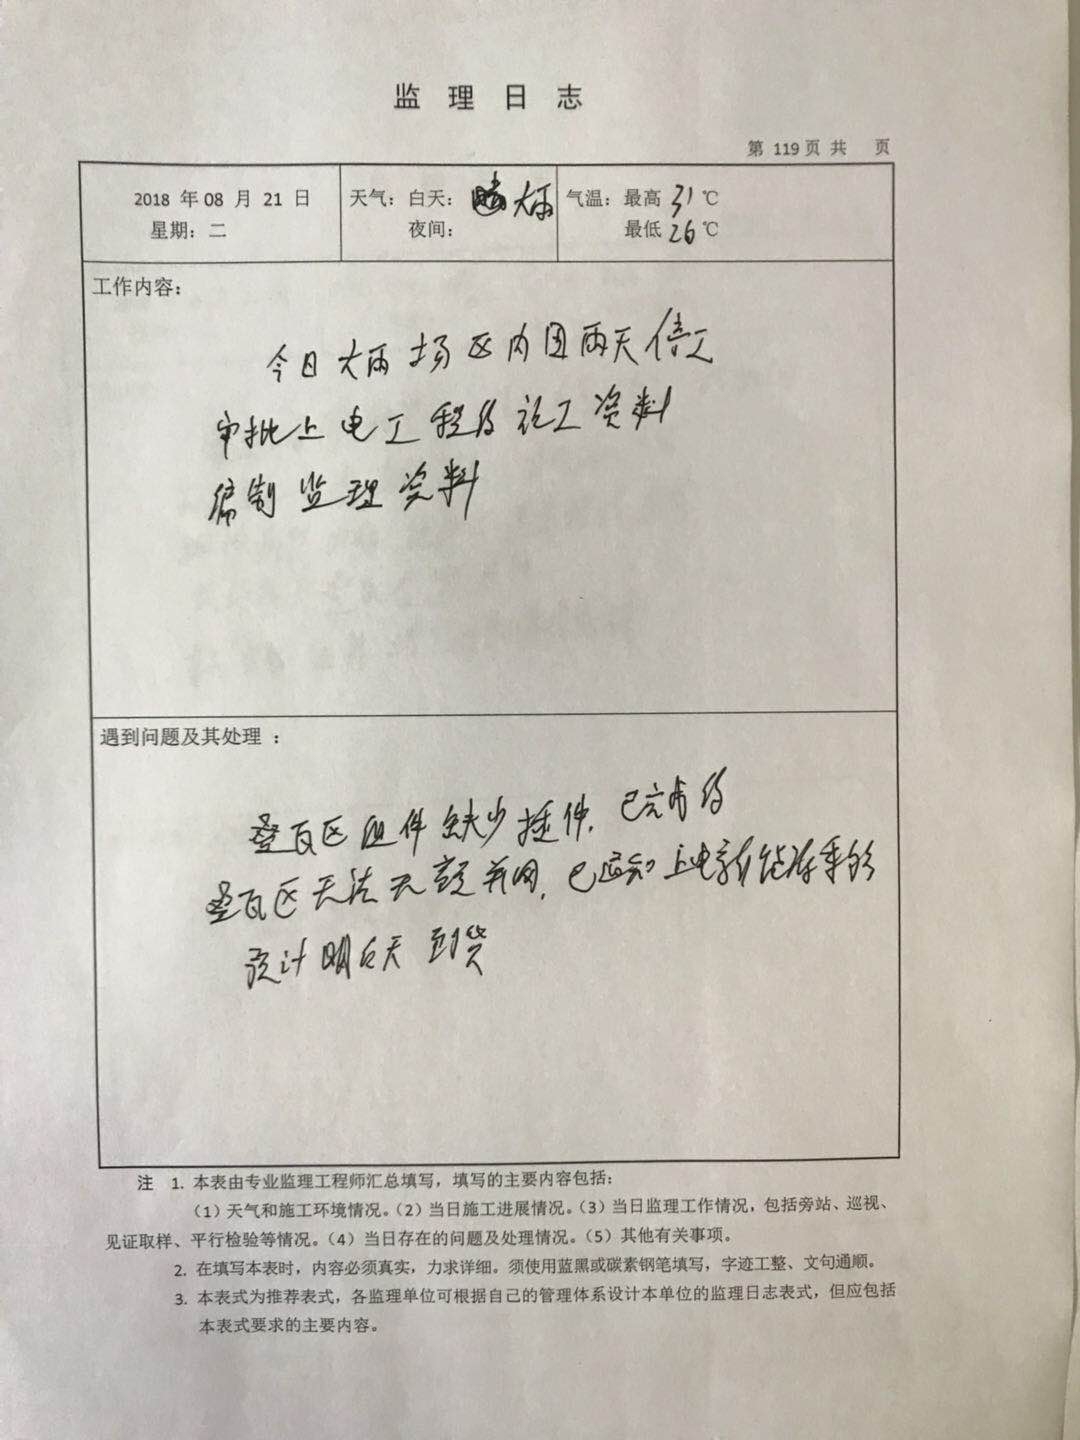 监 理 日 志
第 119 页 共 页
2018 年 08 月 21 日
星期：二
天气：白天： 大雨
夜间：
气温：最高 31 ℃
最低 26 ℃
工作内容：
今日大雨场区内因雨天停工
审批上电工程的施工资料
编制监理资料
遇到问题及其处理 ：
叠瓦区组件缺少插件，已
叠瓦区无法并网，已通知上电新能源
预计明后天到货
注 1. 本表由专业监理工程师汇总填写，填写的主要内容包括：
（1）天气和施工环境情况。（2）当日施工进展情况。（3）当日监理工作情况，包括旁站、巡视、
见证取样、平行检验等情况。（4）当日存在的问题及处理情况。（5）其他有关事项。
2. 在填写本表时，内容必须真实，力求详细。须使用蓝黑或碳素钢笔填写，字迹工整、文句通顺。
3. 本表式为推荐表式，各监理单位可根据自己的管理体系设计本单位的监理日志表式，但应包括
本表式要求的主要内容。